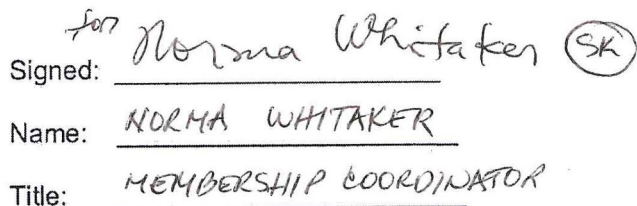 for
Signed: Norma Whitaker SK
Name: NORMA WHITAKER
Title: MEMBERSHIP COORDINATOR